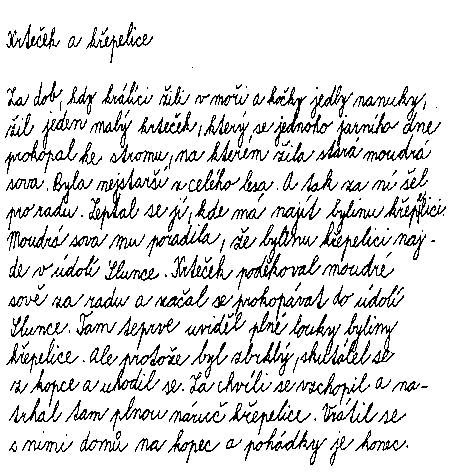 Krteček a křepelice
Za dob, kdy králíci žili v moři a kočky jedly nanuky,
žil jeden malý krteček, který se jednoho jarního dne
prokopal ke stromu, na kterém žila stará moudrá
sova. Byla nejstarší z celého lesa. A tak za ní šel
pro radu. Zeptal se jí, kde má najít bylinu křepelici.
Moudrá sova mu poradila, že bylinu křepelici naj-
de v údolí Slunce. Krteček poděkoval moudré
sově za radu a začal se prokopávat do údolí
Slunce. Tam teprve uviděl plné louky byliny
křepelice. Ale protože byl zbrklý, skutálel se
z kopce a uhodil se. Za chvíli se vzchopil a na-
trhal tam plnou náruč křepelice. Vrátil se
s nimi domů na kopec a pohádky je konec.